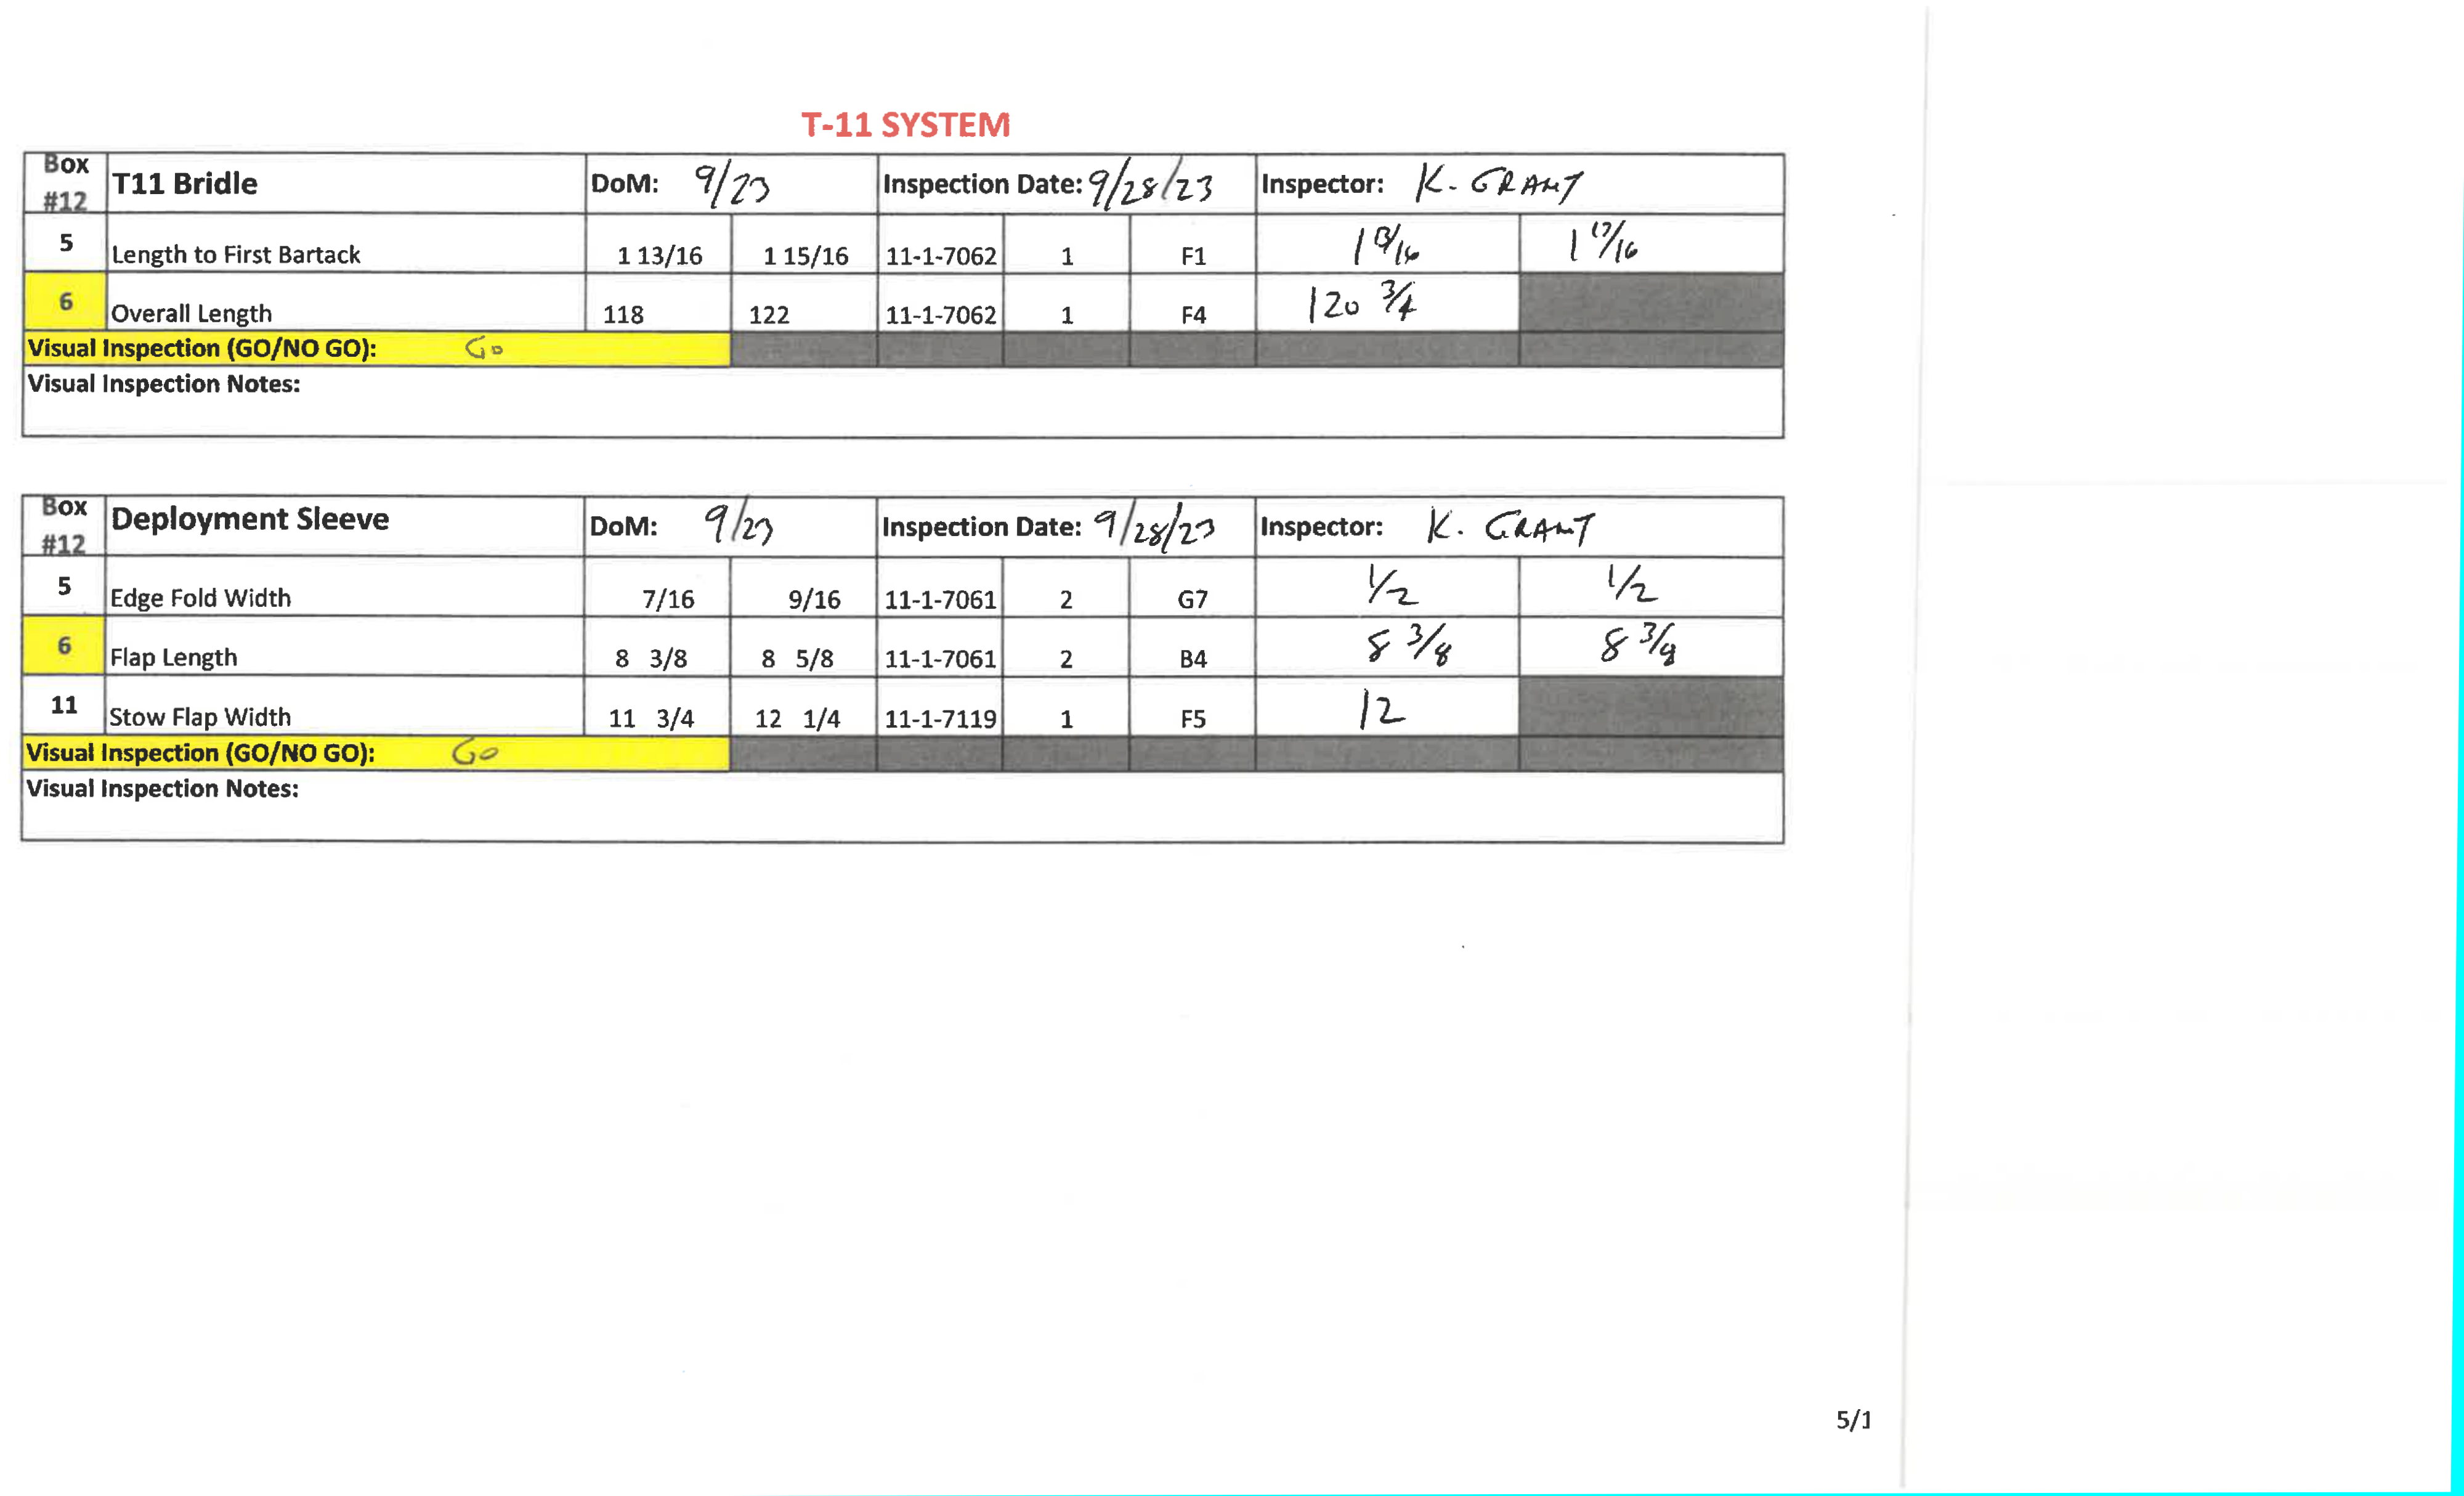 T-11 SYSTEM
Box #12 T11 Bridle DoM: 9/23 Inspection Date: 9/28/23 Inspector: K. GRANT
5 Length to First Bartack 1 13/16 1 15/16 11-1-7062 1 F1 1 13/16
6 Overall Length 118 122 11-1-7062 1 F4 120 3/4
Visual Inspection (GO/NO GO): GO
Visual Inspection Notes:
Box #12 Deployment Sleeve DoM: 9/23 Inspection Date: 9/28/23 Inspector: K. GRANT
5 Edge Fold Width 7/16 9/16 11-1-7061 2 G7 1/2 1/2
6 Flap Length 8 3/8 8 5/8 11-1-7061 2 B4 8 3/8 8 3/8
11 Stow Flap Width 11 3/4 12 1/4 11-1-7119 1 F5 12
Visual Inspection (GO/NO GO): GO
Visual Inspection Notes:
5/1